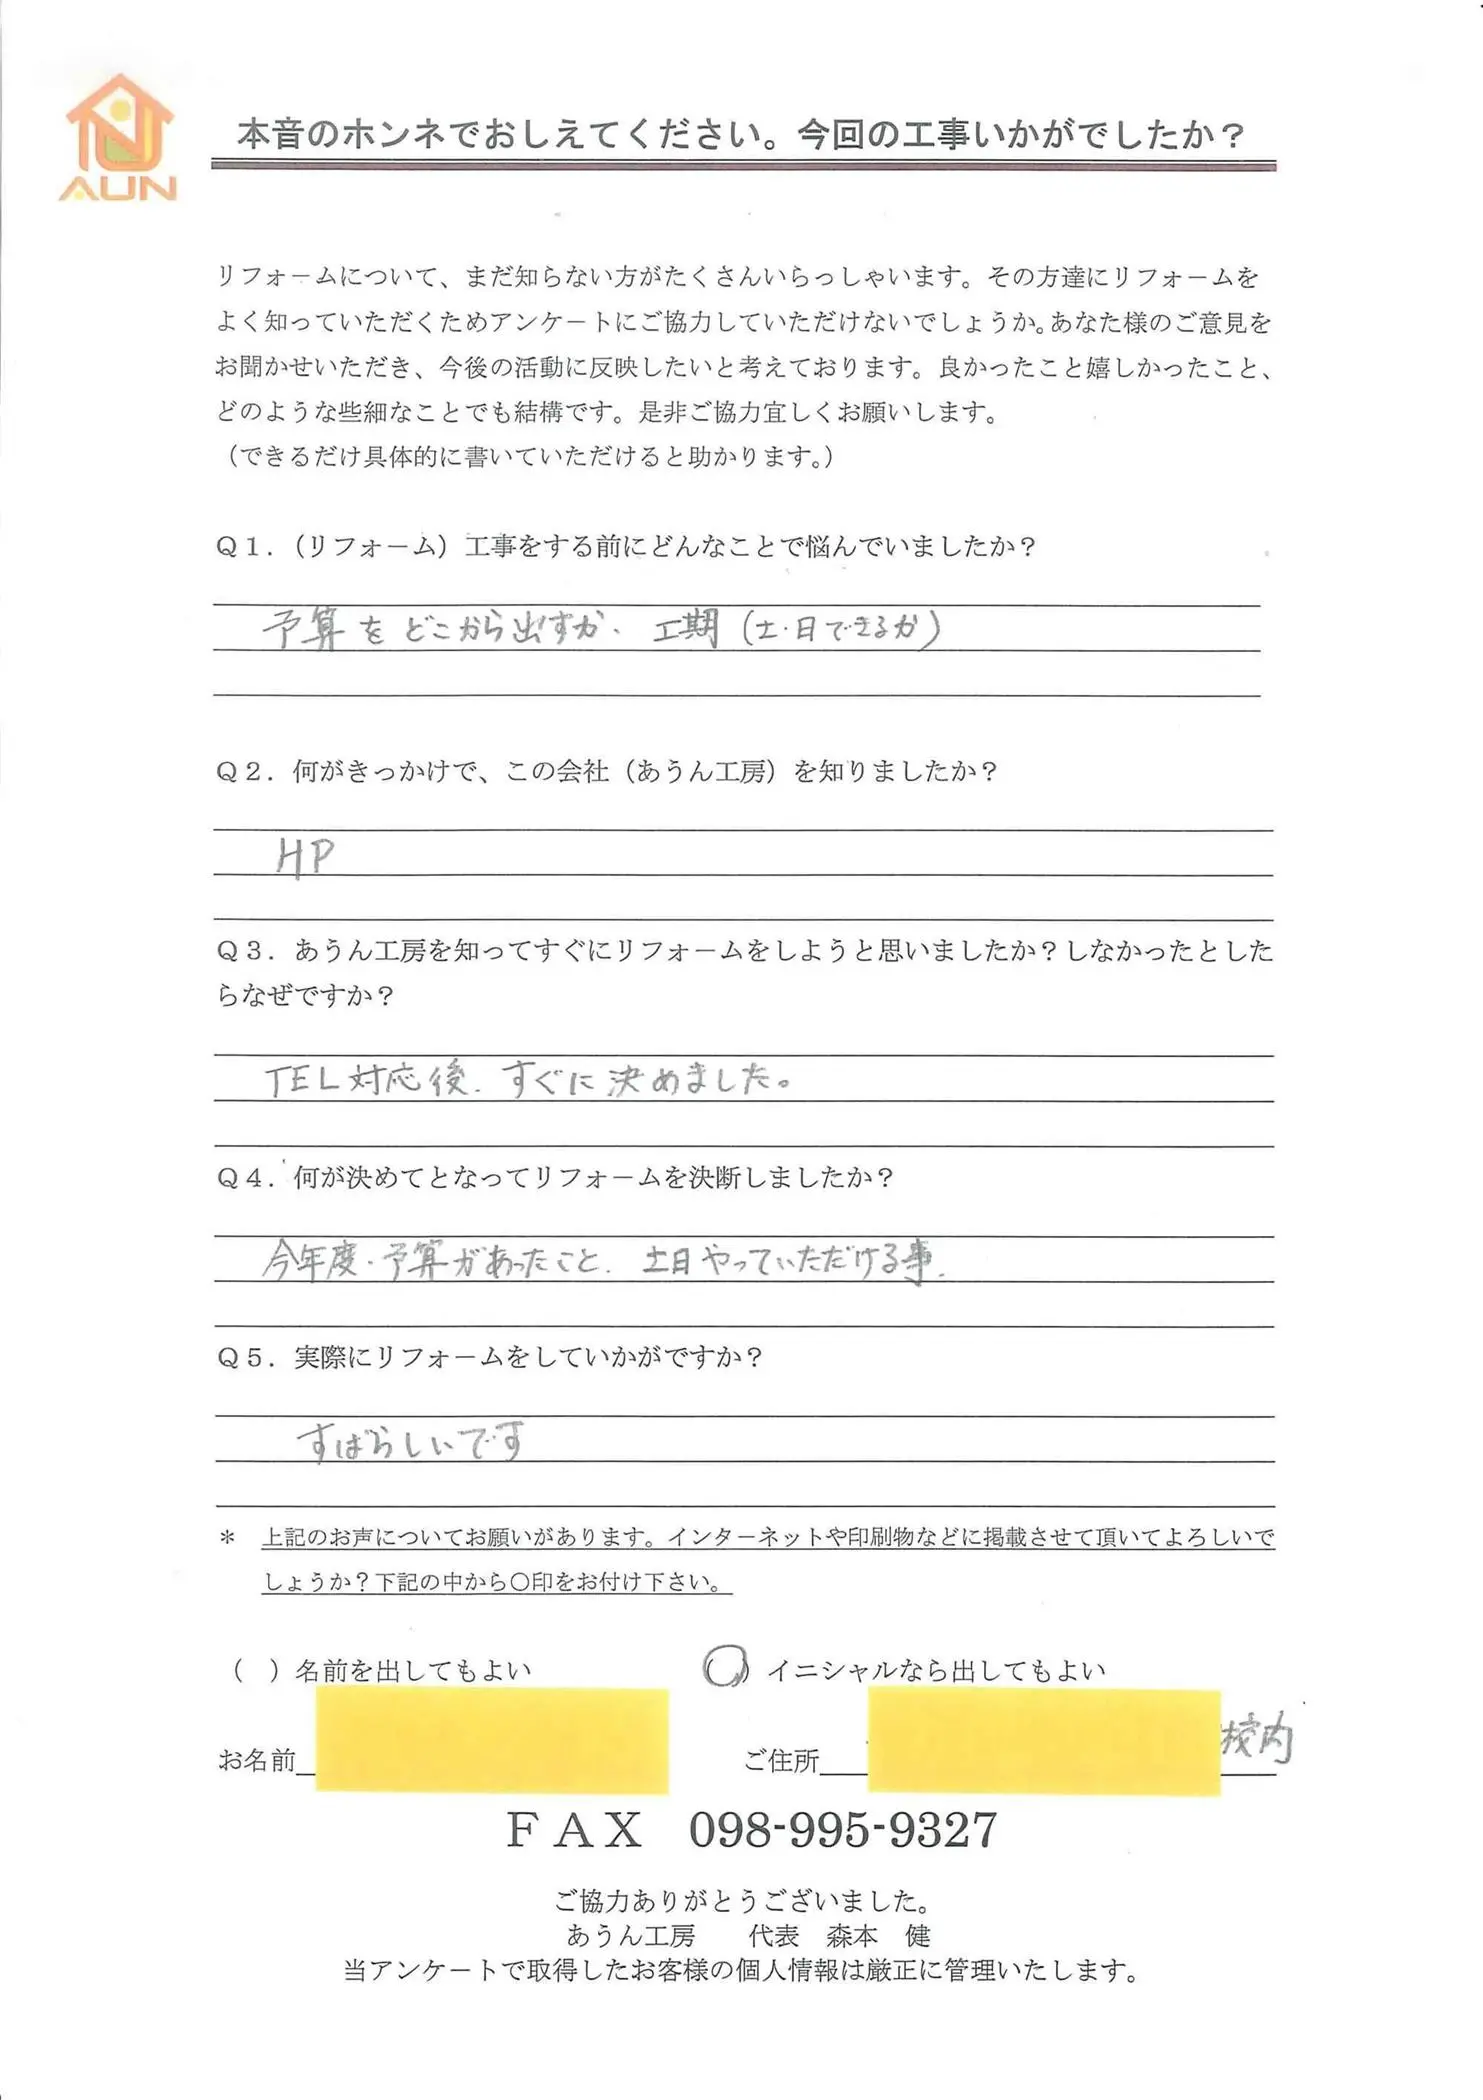 AUN
本音のホンネでおしえてください。今回の工事いかがでしたか？
リフォームについて、まだ知らない方がたくさんいらっしゃいます。その方達にリフォームを
よく知っていただくためアンケートにご協力していただけないでしょうか。あなた様のご意見を
お聞かせいただき、今後の活動に反映したいと考えております。良かったこと嬉しかったこと、
どのような些細なことでも結構です。是非ご協力宜しくお願いします。
（できるだけ具体的に書いていただけると助かります。）
Ｑ１．（リフォーム）工事をする前にどんなことで悩んでいましたか？
予算を どこから出すか. 工期（土・日できるか）
Ｑ２．何がきっかけで、この会社（あうん工房）を知りましたか？
HP
Ｑ３．あうん工房を知ってすぐにリフォームをしようと思いましたか？しなかったとした
らなぜですか？
TEL対応後. すぐに決めました。
Ｑ４．何が決めてとなってリフォームを決断しましたか？
今年度・予算があったこと. 土日やっていただける事.
Ｑ５．実際にリフォームをしていかがですか？
すばらしいです
＊ 上記のお声についてお願いがあります。インターネットや印刷物などに掲載させて頂いてよろしいで
しょうか？下記の中から〇印をお付け下さい。
（ ）名前を出してもよい （○）イニシャルなら出してもよい
お名前 ご住所 校内
ＦＡＸ 098-995-9327
ご協力ありがとうございました。
あうん工房 代表 森本 健
当アンケートで取得したお客様の個人情報は厳正に管理いたします。